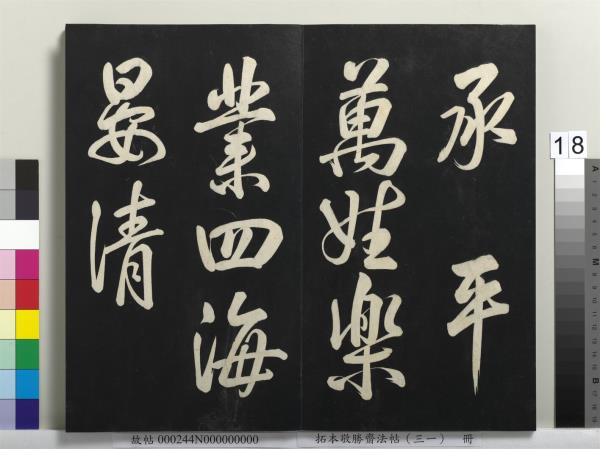 承平
萬姓樂
業四海
晏清
18
故帖 000244N000000000
拓本敬勝齋法帖（三一） 冊